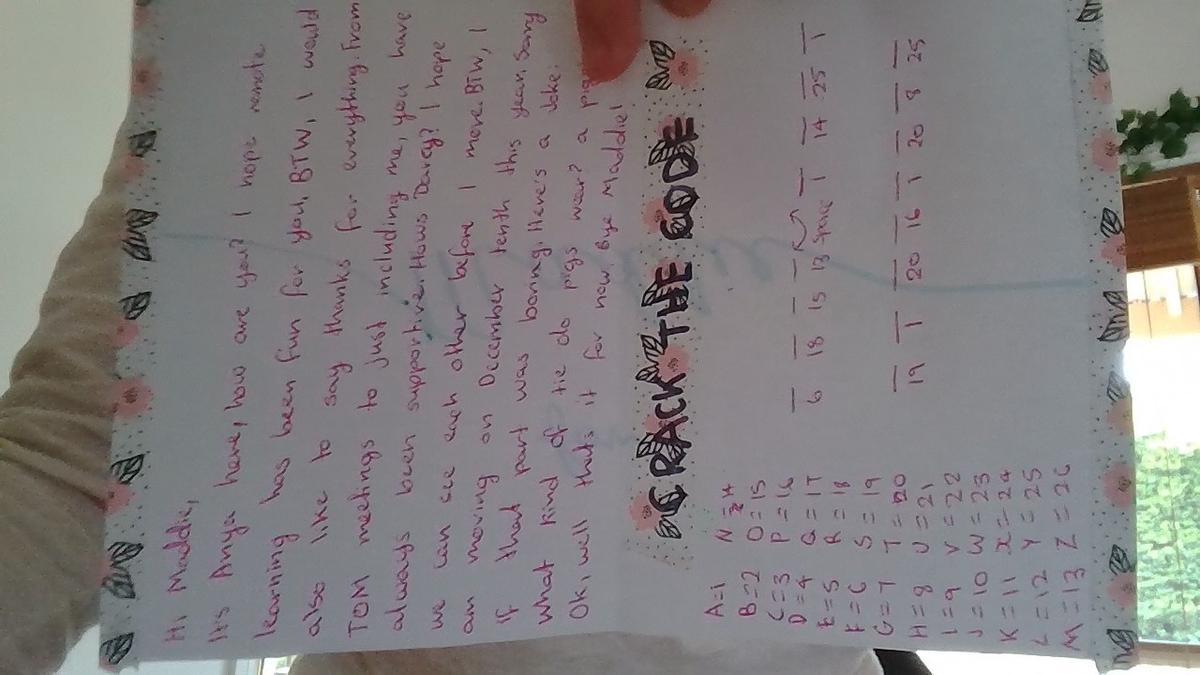 Hi Maddie,
It's Anya here, how are you? I hope remote
learning has been fun for you, BTW, I would
also like to say thanks for everything. From
TOM meetings to just including me, you have
always been supportive. Hows Darcy? I hope
we can see each other before I move. BTW, I
am moving on December tenth this year. Sorry
if that part was boring. Here's a Joke:
What kind of tie do pigs wear? a
Ok, well thats it for now Bye Maddie!
CRACK THE CODE
A=1 N=14
B=2 O=15
C=3 P=16
D=4 Q=17
E=5 R=18
F=6 S=19
G=7 T=20
H=8 U=21
I=9 V=22
J=10 W=23
K=11 X=24
L=12 Y=25
M=13 Z=26
6 18 15 13 space 1 14 25 1
19 1 20 16 1 20 8 25